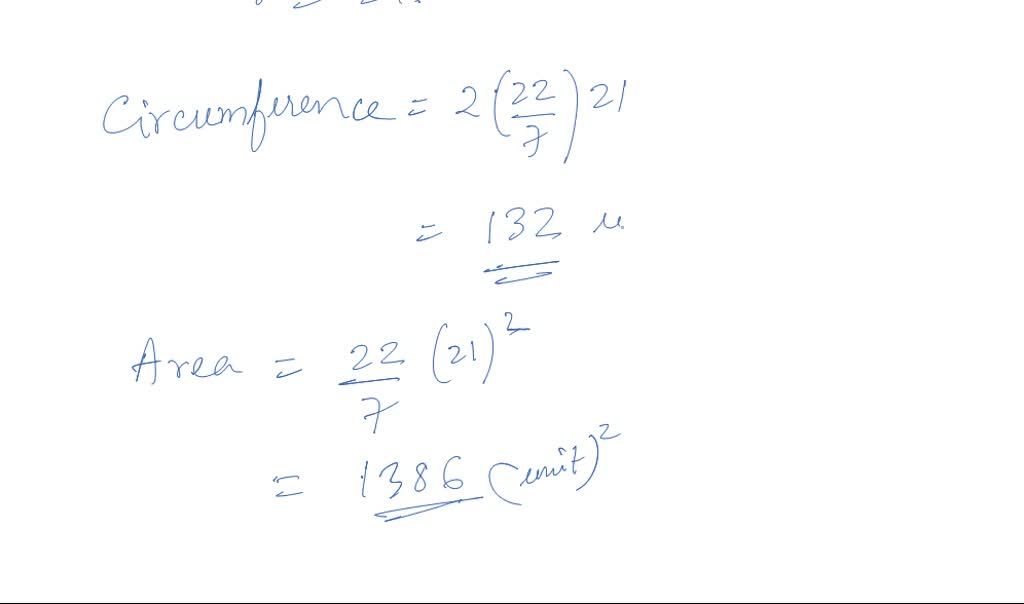 Circumference = 2(22/7)21
= 132 u.
Area = 22/7 (21)²
= 1386 (unit)²